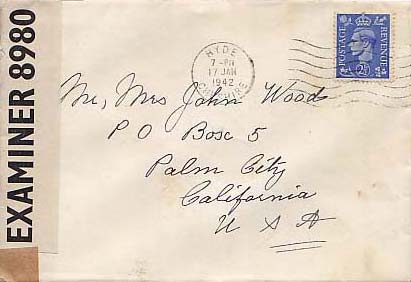 EXAMINER 8980
HYDE
7-PM
17 JAN
1942
CHESHIRE
POSTAGE
REVENUE
2½
Mr, Mrs John Woods
P O Box 5
Palm City
California
U S A